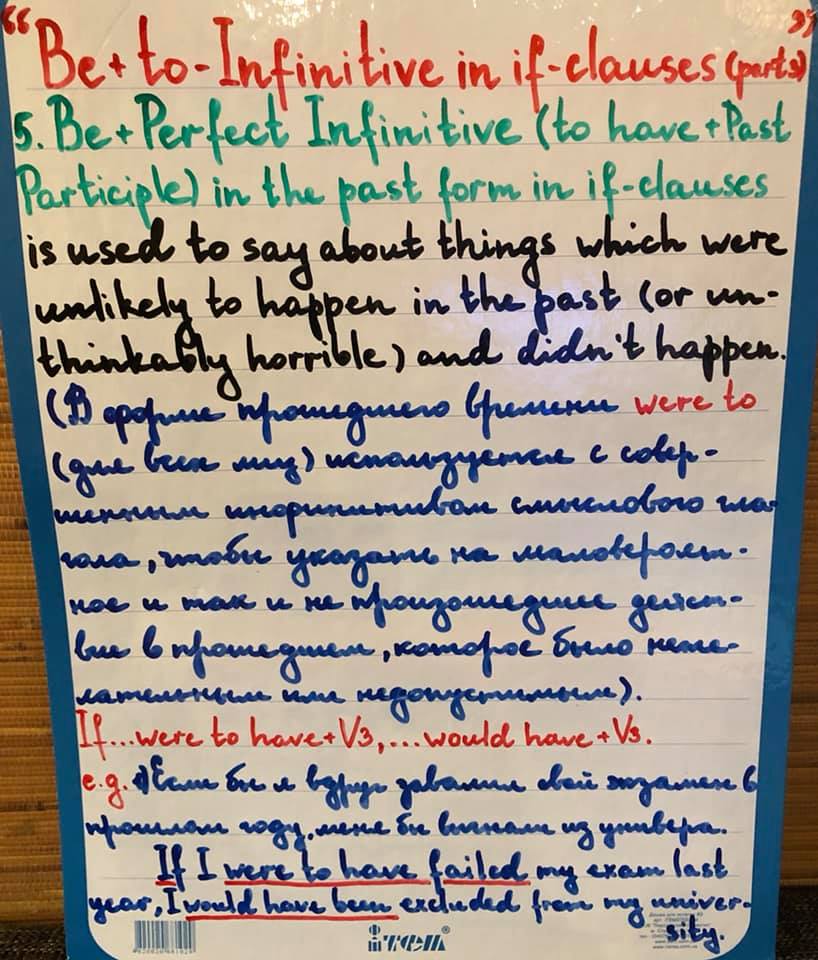 "Be+to-Infinitive in if-clauses (part 3)"
5. Be+Perfect Infinitive (to have+Past
Participle) in the past form in if-clauses
is used to say about things which were
unlikely to happen in the past (or un-
thinkably horrible) and didn't happen.
(В форме прошедшего времени were to
(для всех лиц) используется с совер-
шенным инфинитивом смыслового гла-
гола, чтобы указать на маловероят-
ное и так и не произошедшее дейст-
вие в прошедшем, которое было неже-
лательным или недопустимым).
If...were to have+V3,...would have+V3.
e.g. 1) Если бы я вдруг завалил свой экзамен в
прошлом году, меня бы выгнали из универа.
If I were to have failed my exam last
year, I would have been excluded from my univer-
sity.
item®